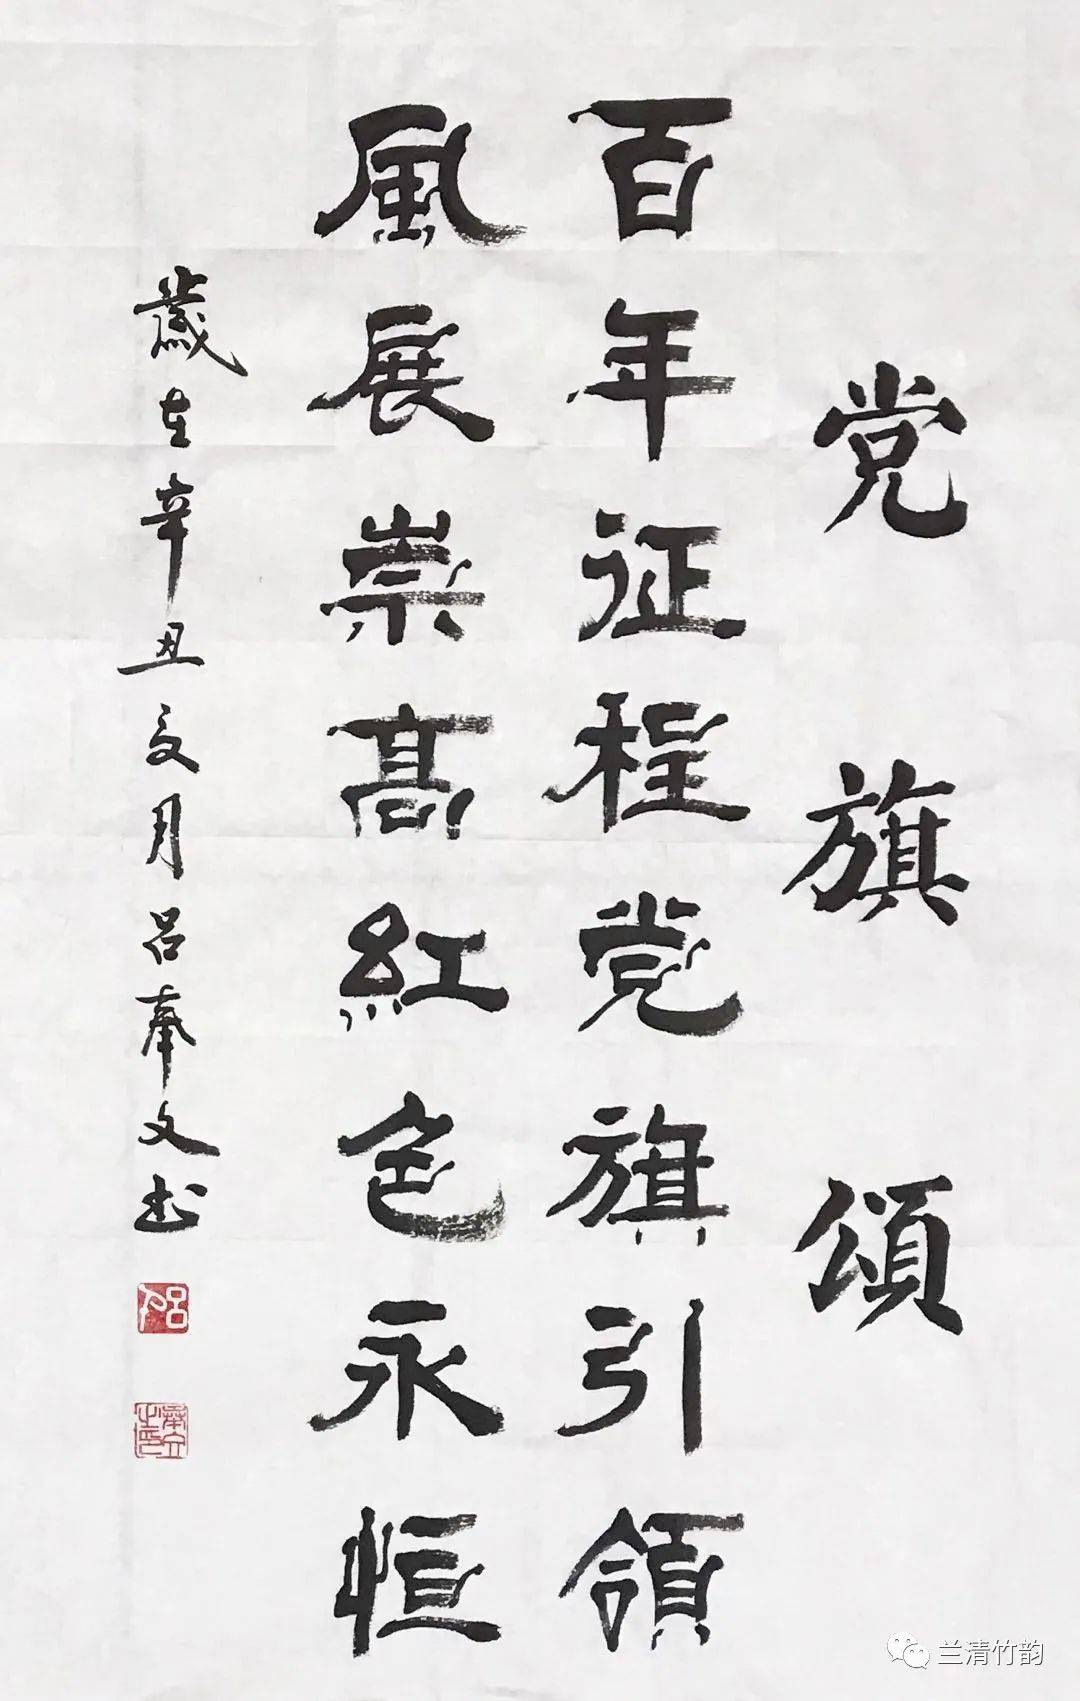 党旗頌
百年征程党旗引領
風展崇高紅色永恒
歲在辛丑夏月呂奉文书
兰清竹韵